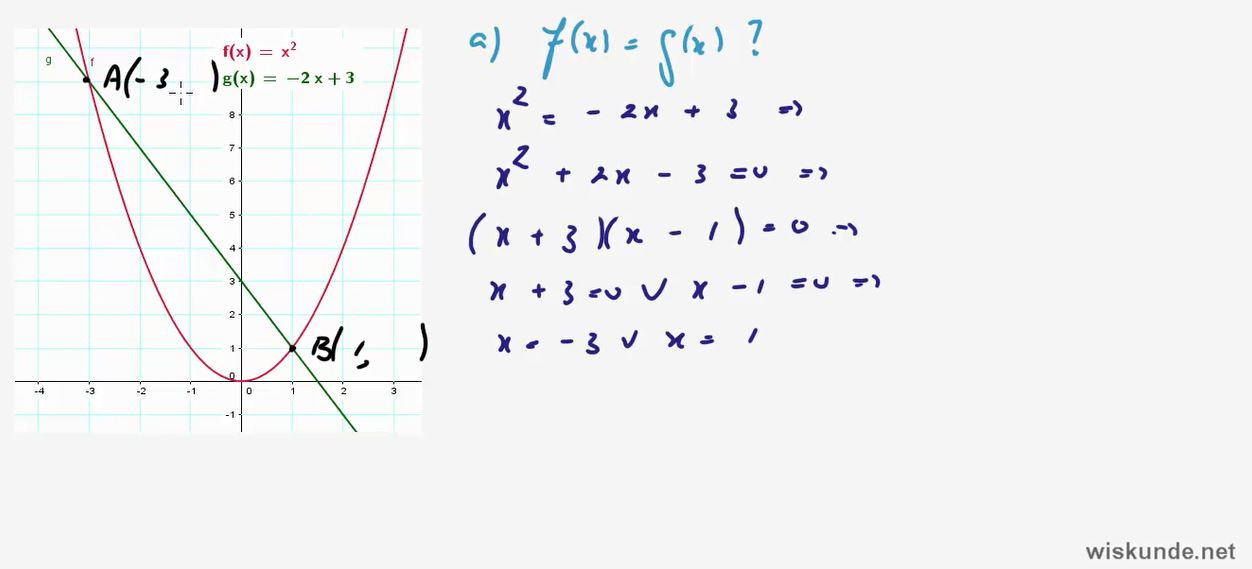 g
f
f(x) = x²
g(x) = −2x + 3
A(-3 )
8
7
6
5
4
3
2
1
0
-1
-4 -3 -2 -1 0 1 2 3
B(1, )
a) f(x) = g(x) ?
x² = - 2x + 3 =>
x² + 2x - 3 = 0 =>
(x + 3)(x - 1) = 0 =>
x + 3 = 0 ∨ x - 1 = 0 =>
x = -3 ∨ x = 1
wiskunde.net